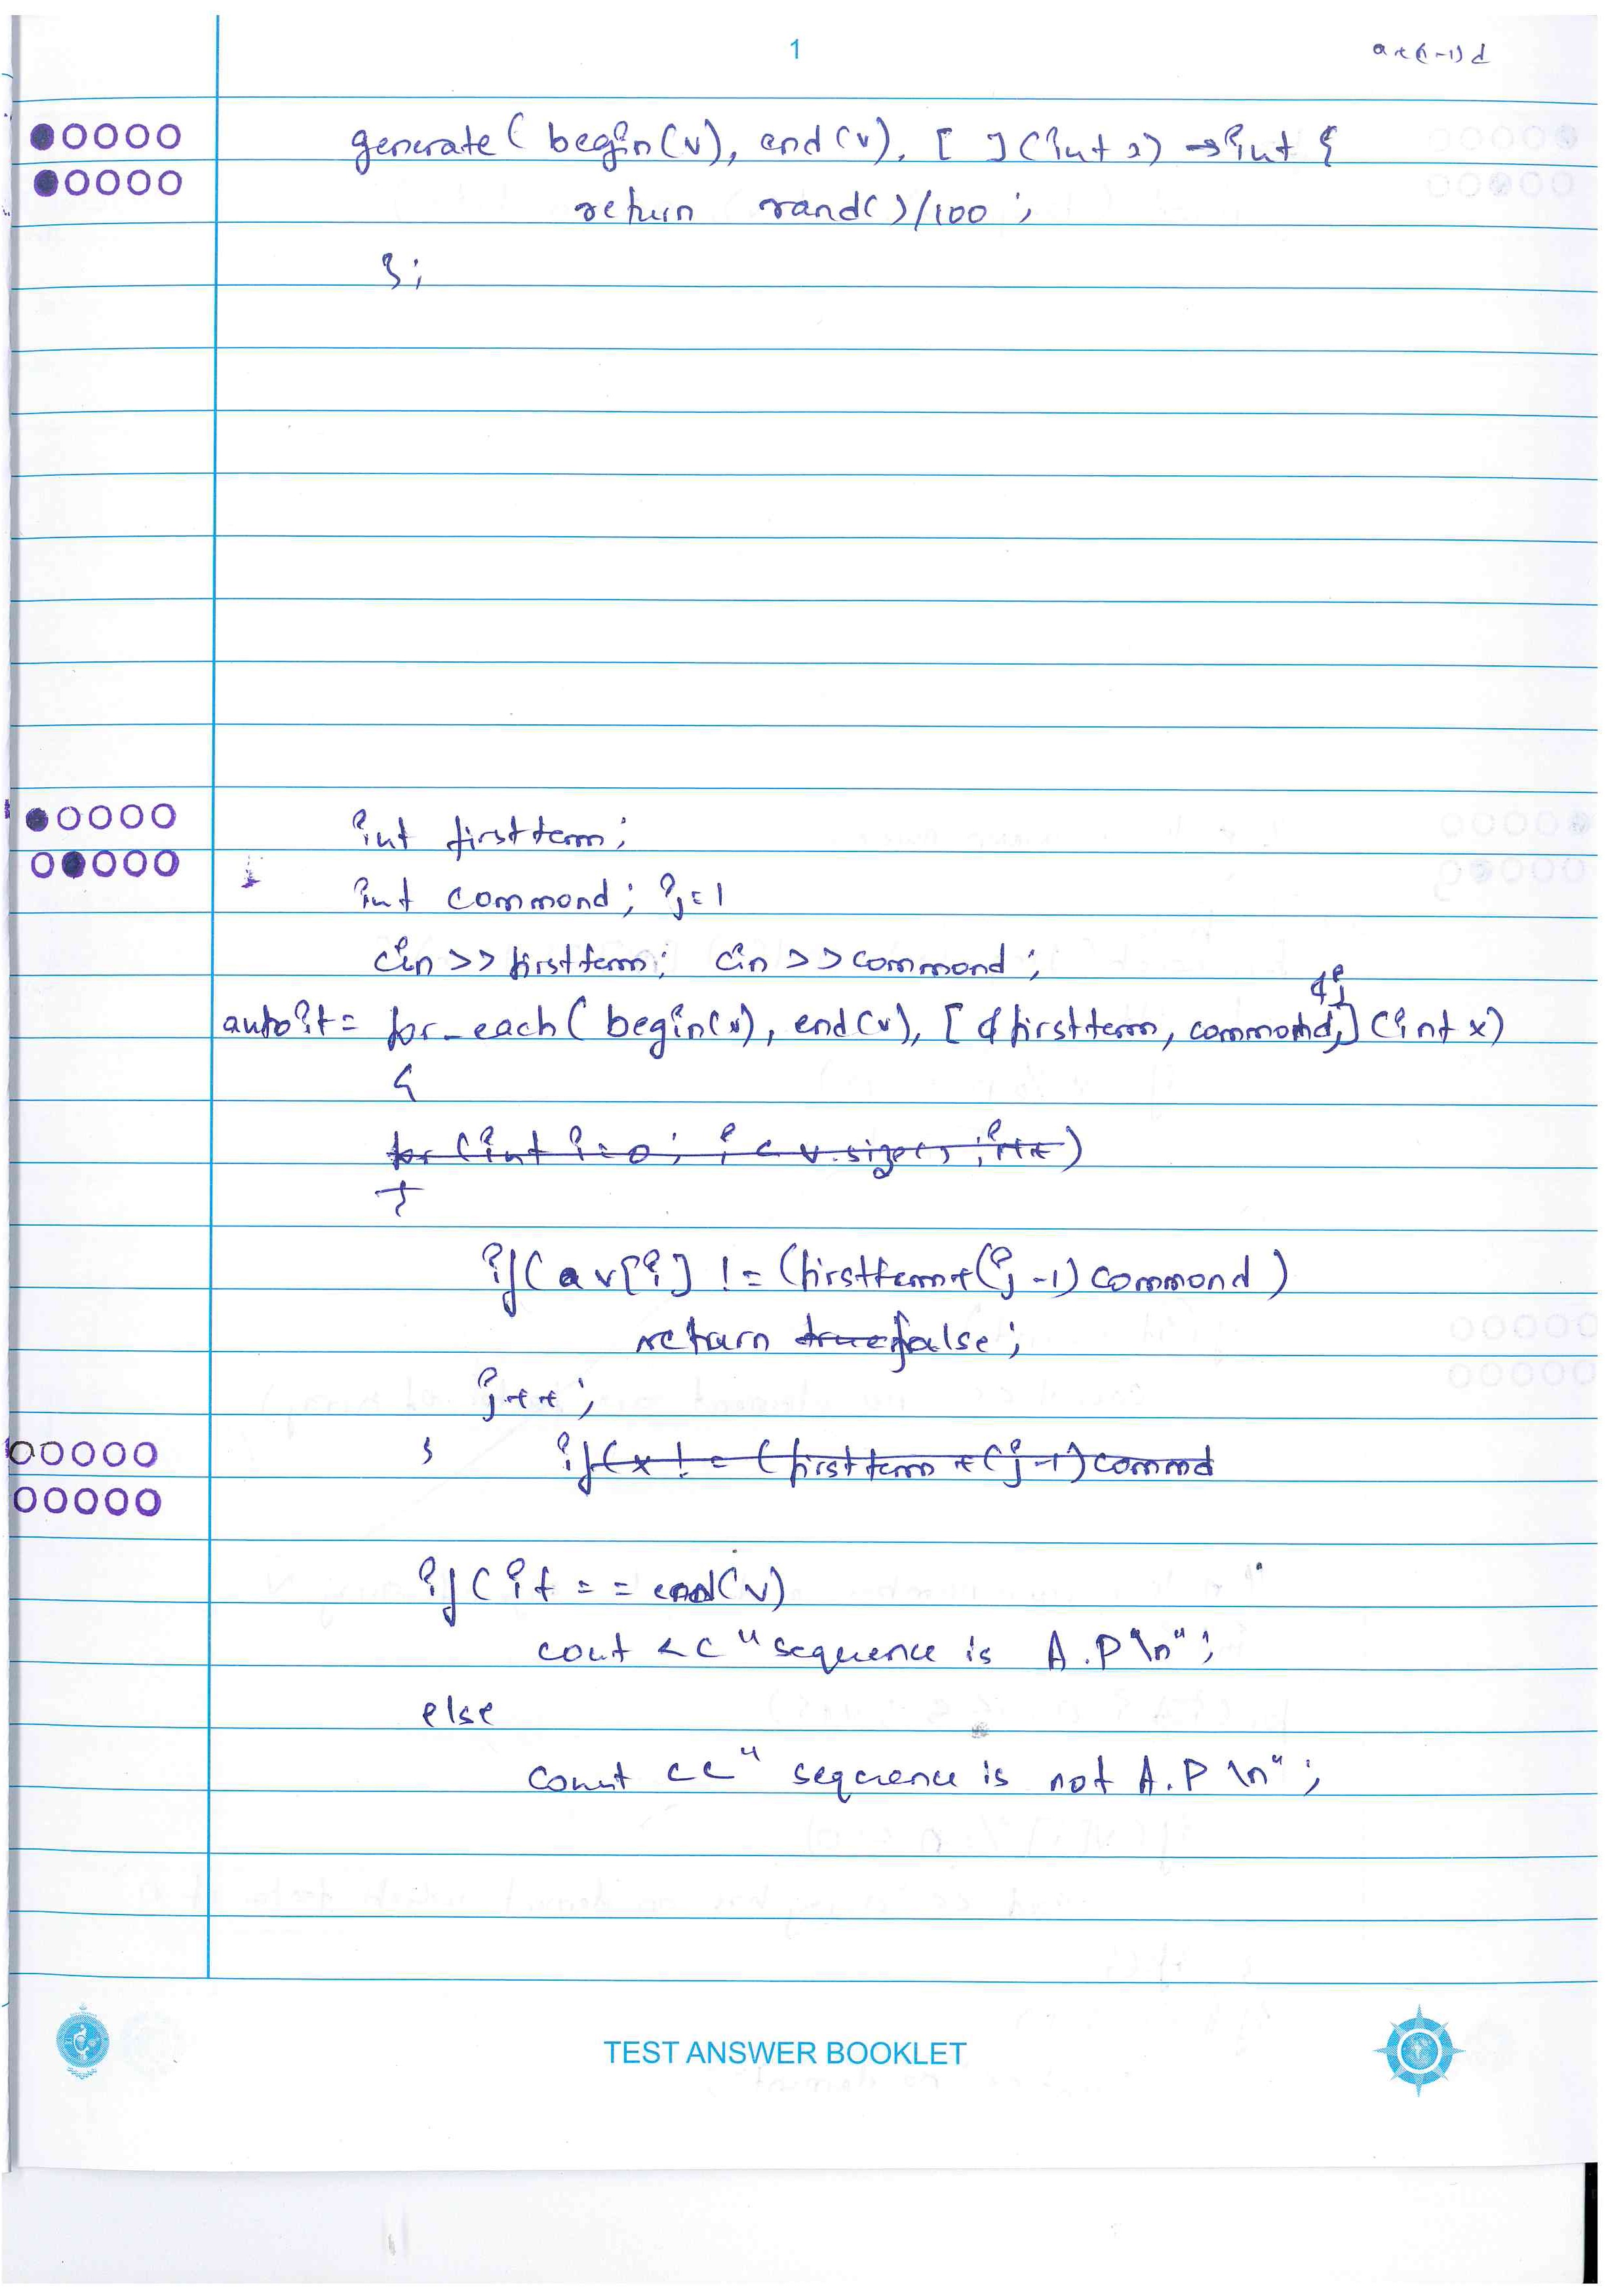 1
a+(n-1)d
generate( begin(v), end(v), [ ](int x) →int {
return rand()/100 ;
};
int firstterm;
int commond; j=1
cin>>firstterm; cin>>commond;
&j
auto it = for_each( begin(v), end(v), [ &firstterm, commond,] (int x)
{
for (int i=0; i < v.size(); i++)
{
if( a v[i] != (firstterm+(j-1) commond )
return true false;
j++;
} if(x != (firstterm +(j-1) commd
if( it == end(v)
cout << "sequence is A.P\n";
else
cout << "sequence is not A.P \n";
TEST ANSWER BOOKLET